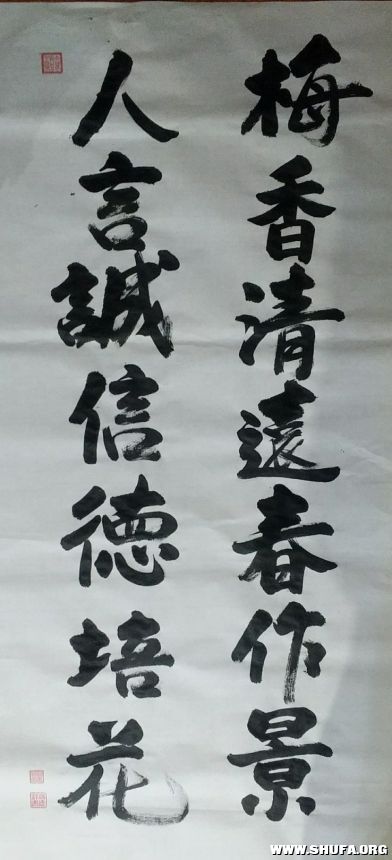 梅香清遠春作景
人言誠信德培花
WWW.SHUFA.ORG